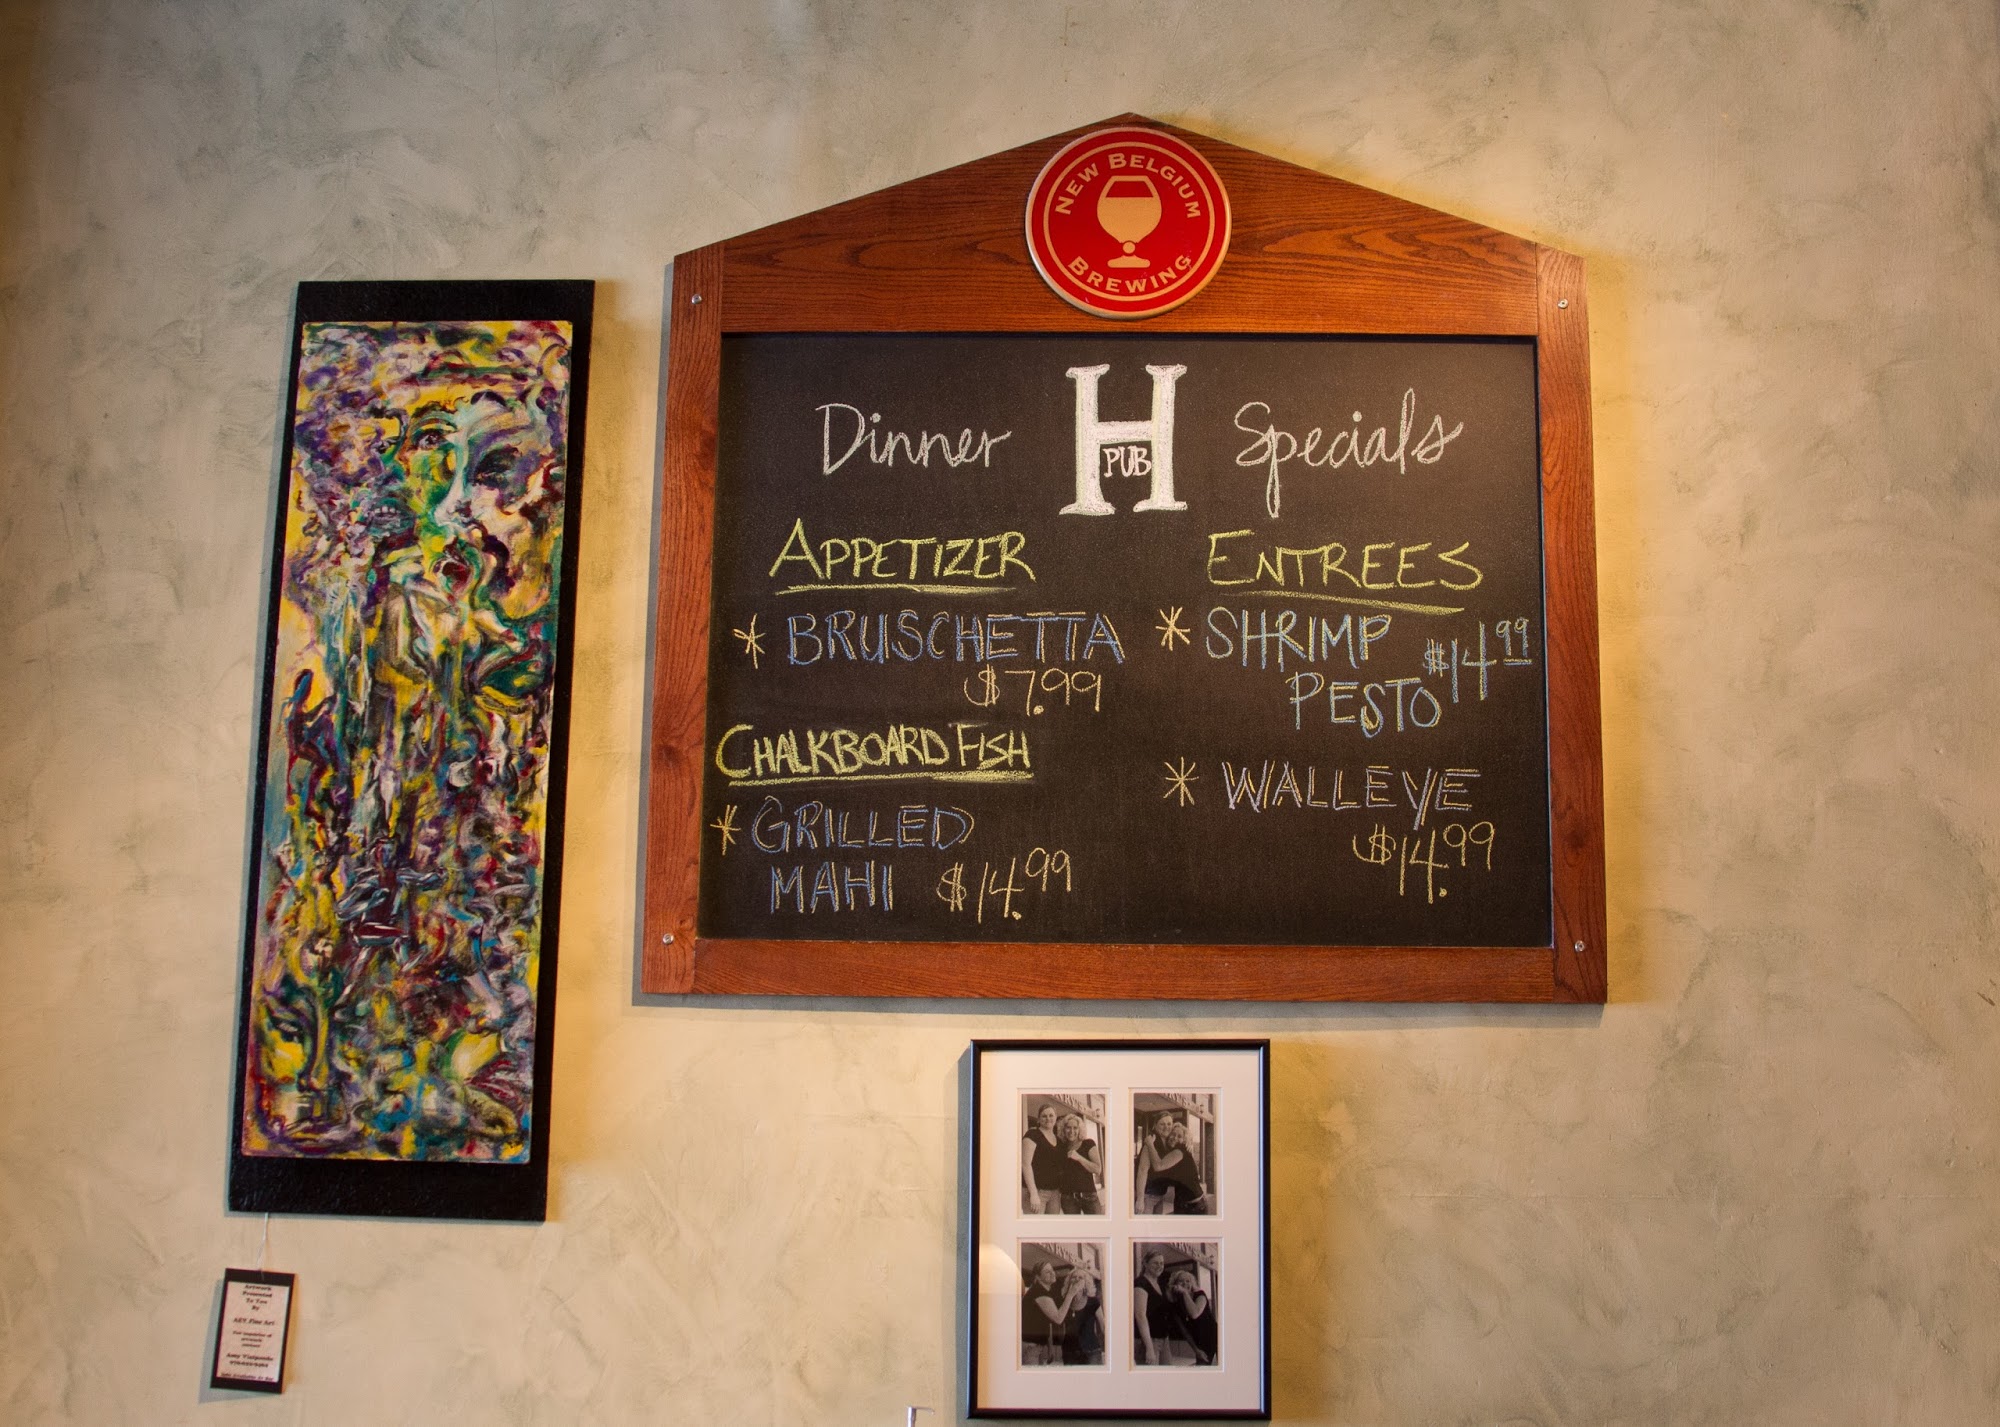 NEW BELGIUM
BREWING
Dinner H PUB Specials
APPETIZER
* BRUSCHETTA
$7.99
CHALKBOARD FISH
* GRILLED
MAHI $14.99
ENTREES
* SHRIMP
PESTO $14 99
* WALLEYE
$14.99
Artwork
Presented
To You
By
Fine Art